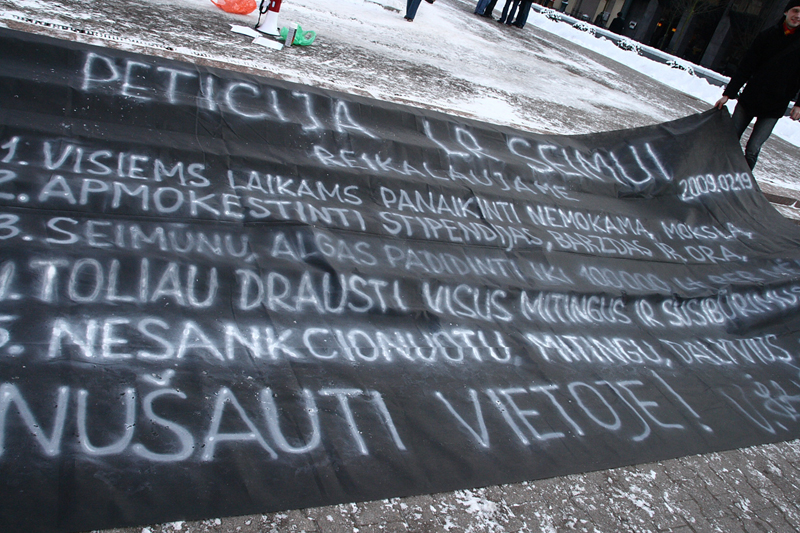 PETICIJA LR SEIMUI
REIKALAUJAME 2009.02.19
1. VISIEMS LAIKAMS PANAIKINTI NEMOKAMĄ MOKSLĄ.
2. APMOKESTINTI STIPENDIJAS, BARZDAS IR ORĄ.
3. SEIMŪNŲ ALGAS PADIDINTI IKI 100000 Lt
4. TOLIAU DRAUSTI VISUS MITINGUS IR SUSIBŪRIMUS
5. NESANKCIONUOTŲ MITINGŲ DALYVIUS
NUŠAUTI VIETOJE!